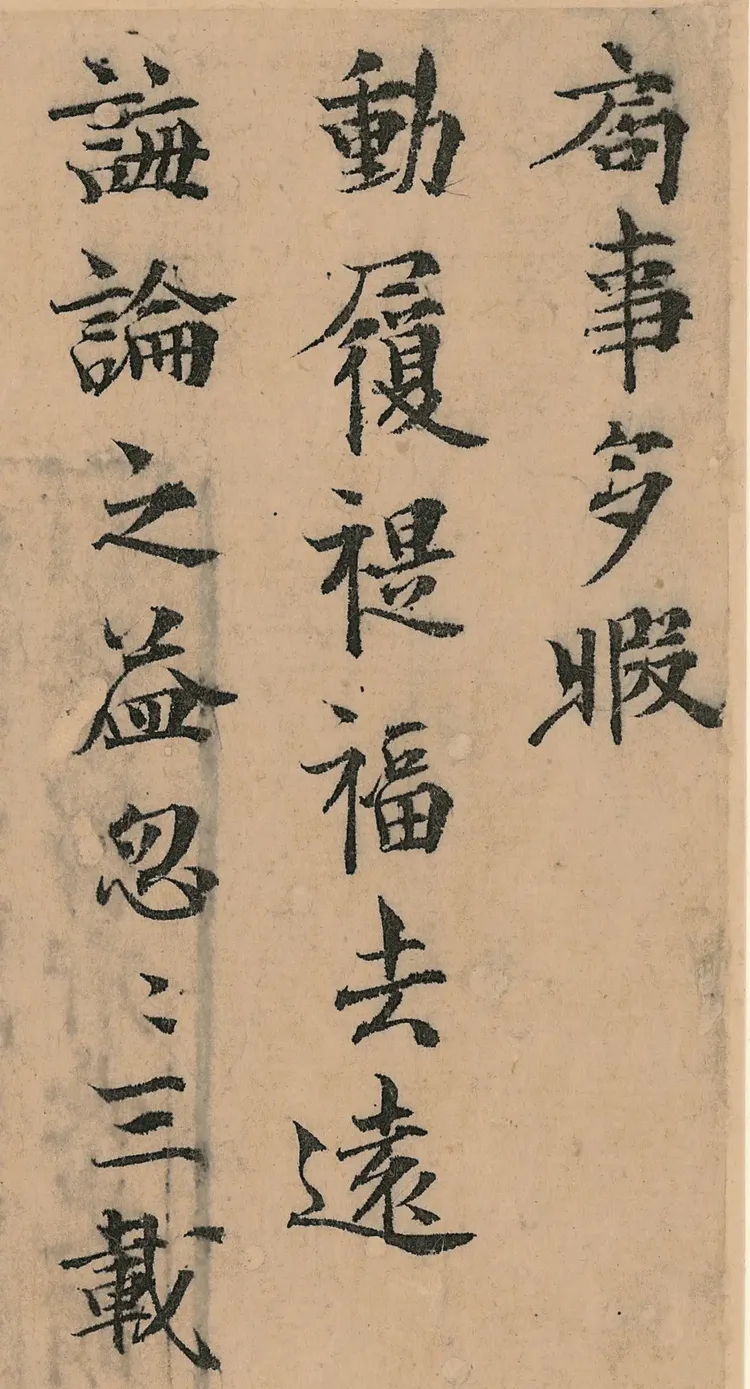 局事多暇
動履禔福去遠
誨論之益忽〻三載